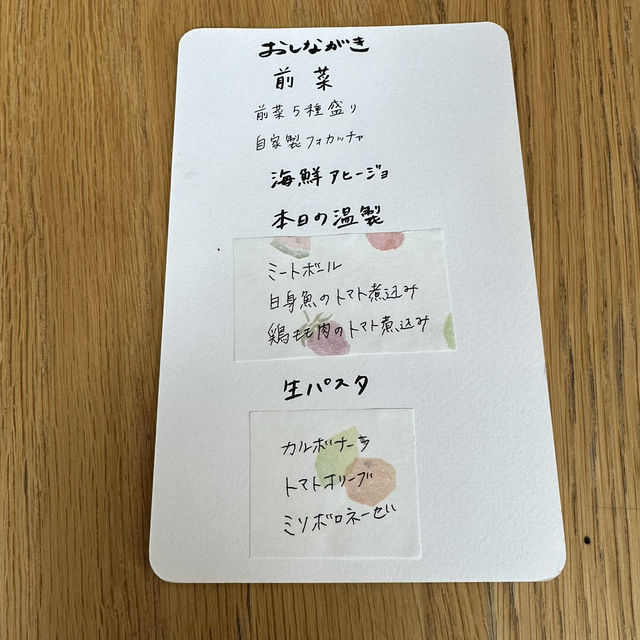 おしながき
前菜
前菜5種盛り
自家製フォカッチャ
海鮮アヒージョ
本日の温製
ミートボール
白身魚のトマト煮込み
鶏もも肉のトマト煮込み
生パスタ
カルボナーラ
トマトオリーブ
ミソボロネーゼ